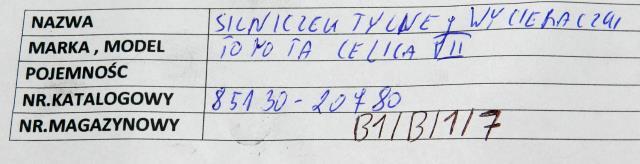 NAZWA SILNICZEK TYLNEJ WYCIERACZKI
MARKA , MODEL TOYOTA CELICA VII
POJEMNOŚĆ
NR.KATALOGOWY 85130-20780
NR.MAGAZYNOWY B1/B/1/7